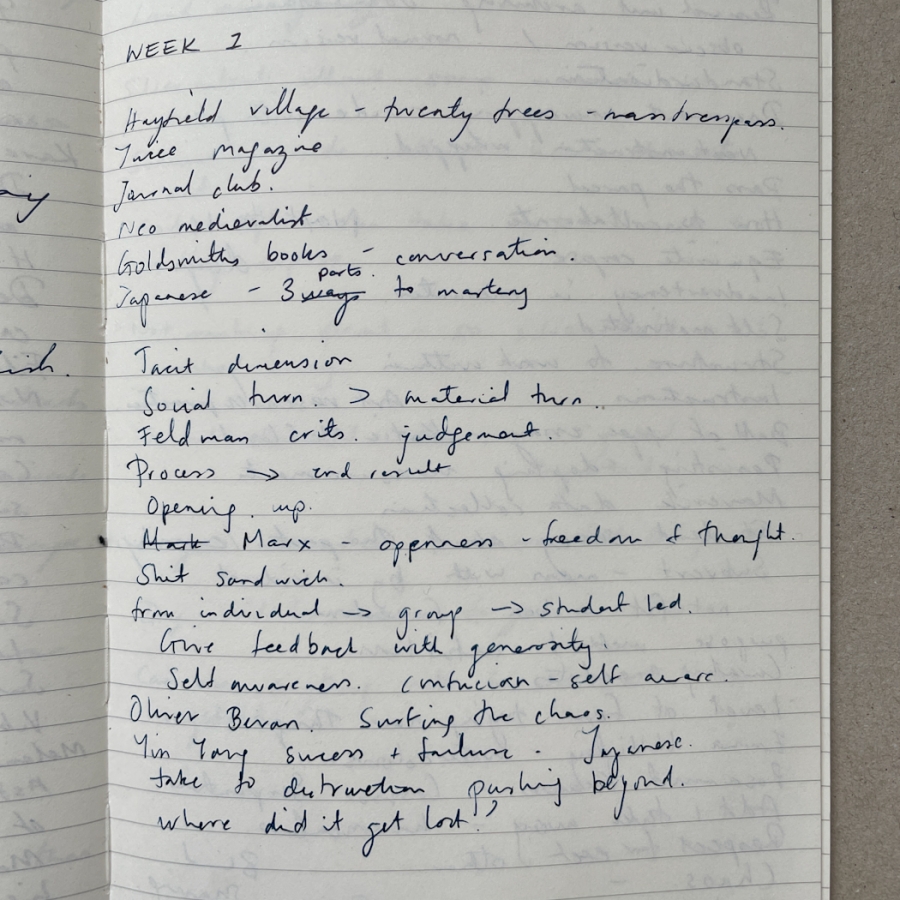 WEEK 1
Hayfield village - twenty trees - mass trespass.
Juice magazine
Journal club.
Neo medievalist
Goldsmiths books - conversation.
parts.
Japanese - 3 ways to mastery
Tacit dimension
Social turn. > material turn..
Feldman crits. judgement.
Process -> end result
Opening. up.
Mark Marx - openness - freedom of thought.
Shit sandwich.
from individual -> group -> student led.
Give feedback with generosity.
Self awareness. Confucian - self aware.
Oliver Bevan. Surfing the chaos.
Yin Yang success + failure. Japanese.
take to destruction pushing beyond.
where did it get lost?
ish.